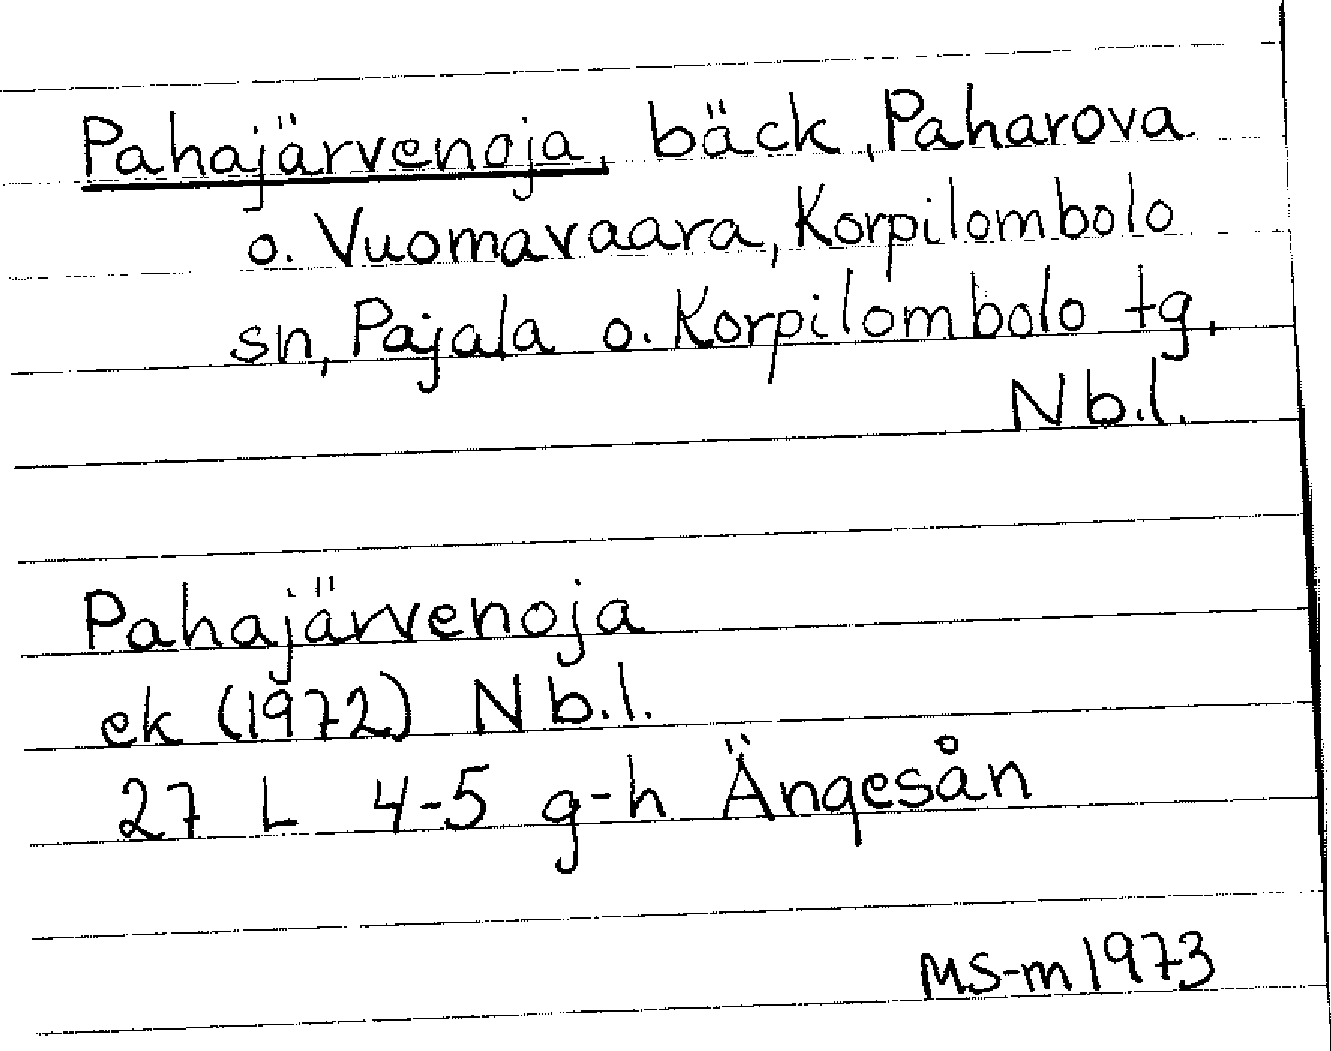 Pahajärvenoja, bäck, Paharova
o. Vuomavaara, Korpilombolo
sn, Pajala o. Korpilombolo tg,
Nb.l.
Pahajärvenoja
ek (1972) Nb.l.
27 L 4-5 g-h Ängesån
MS-m 1973